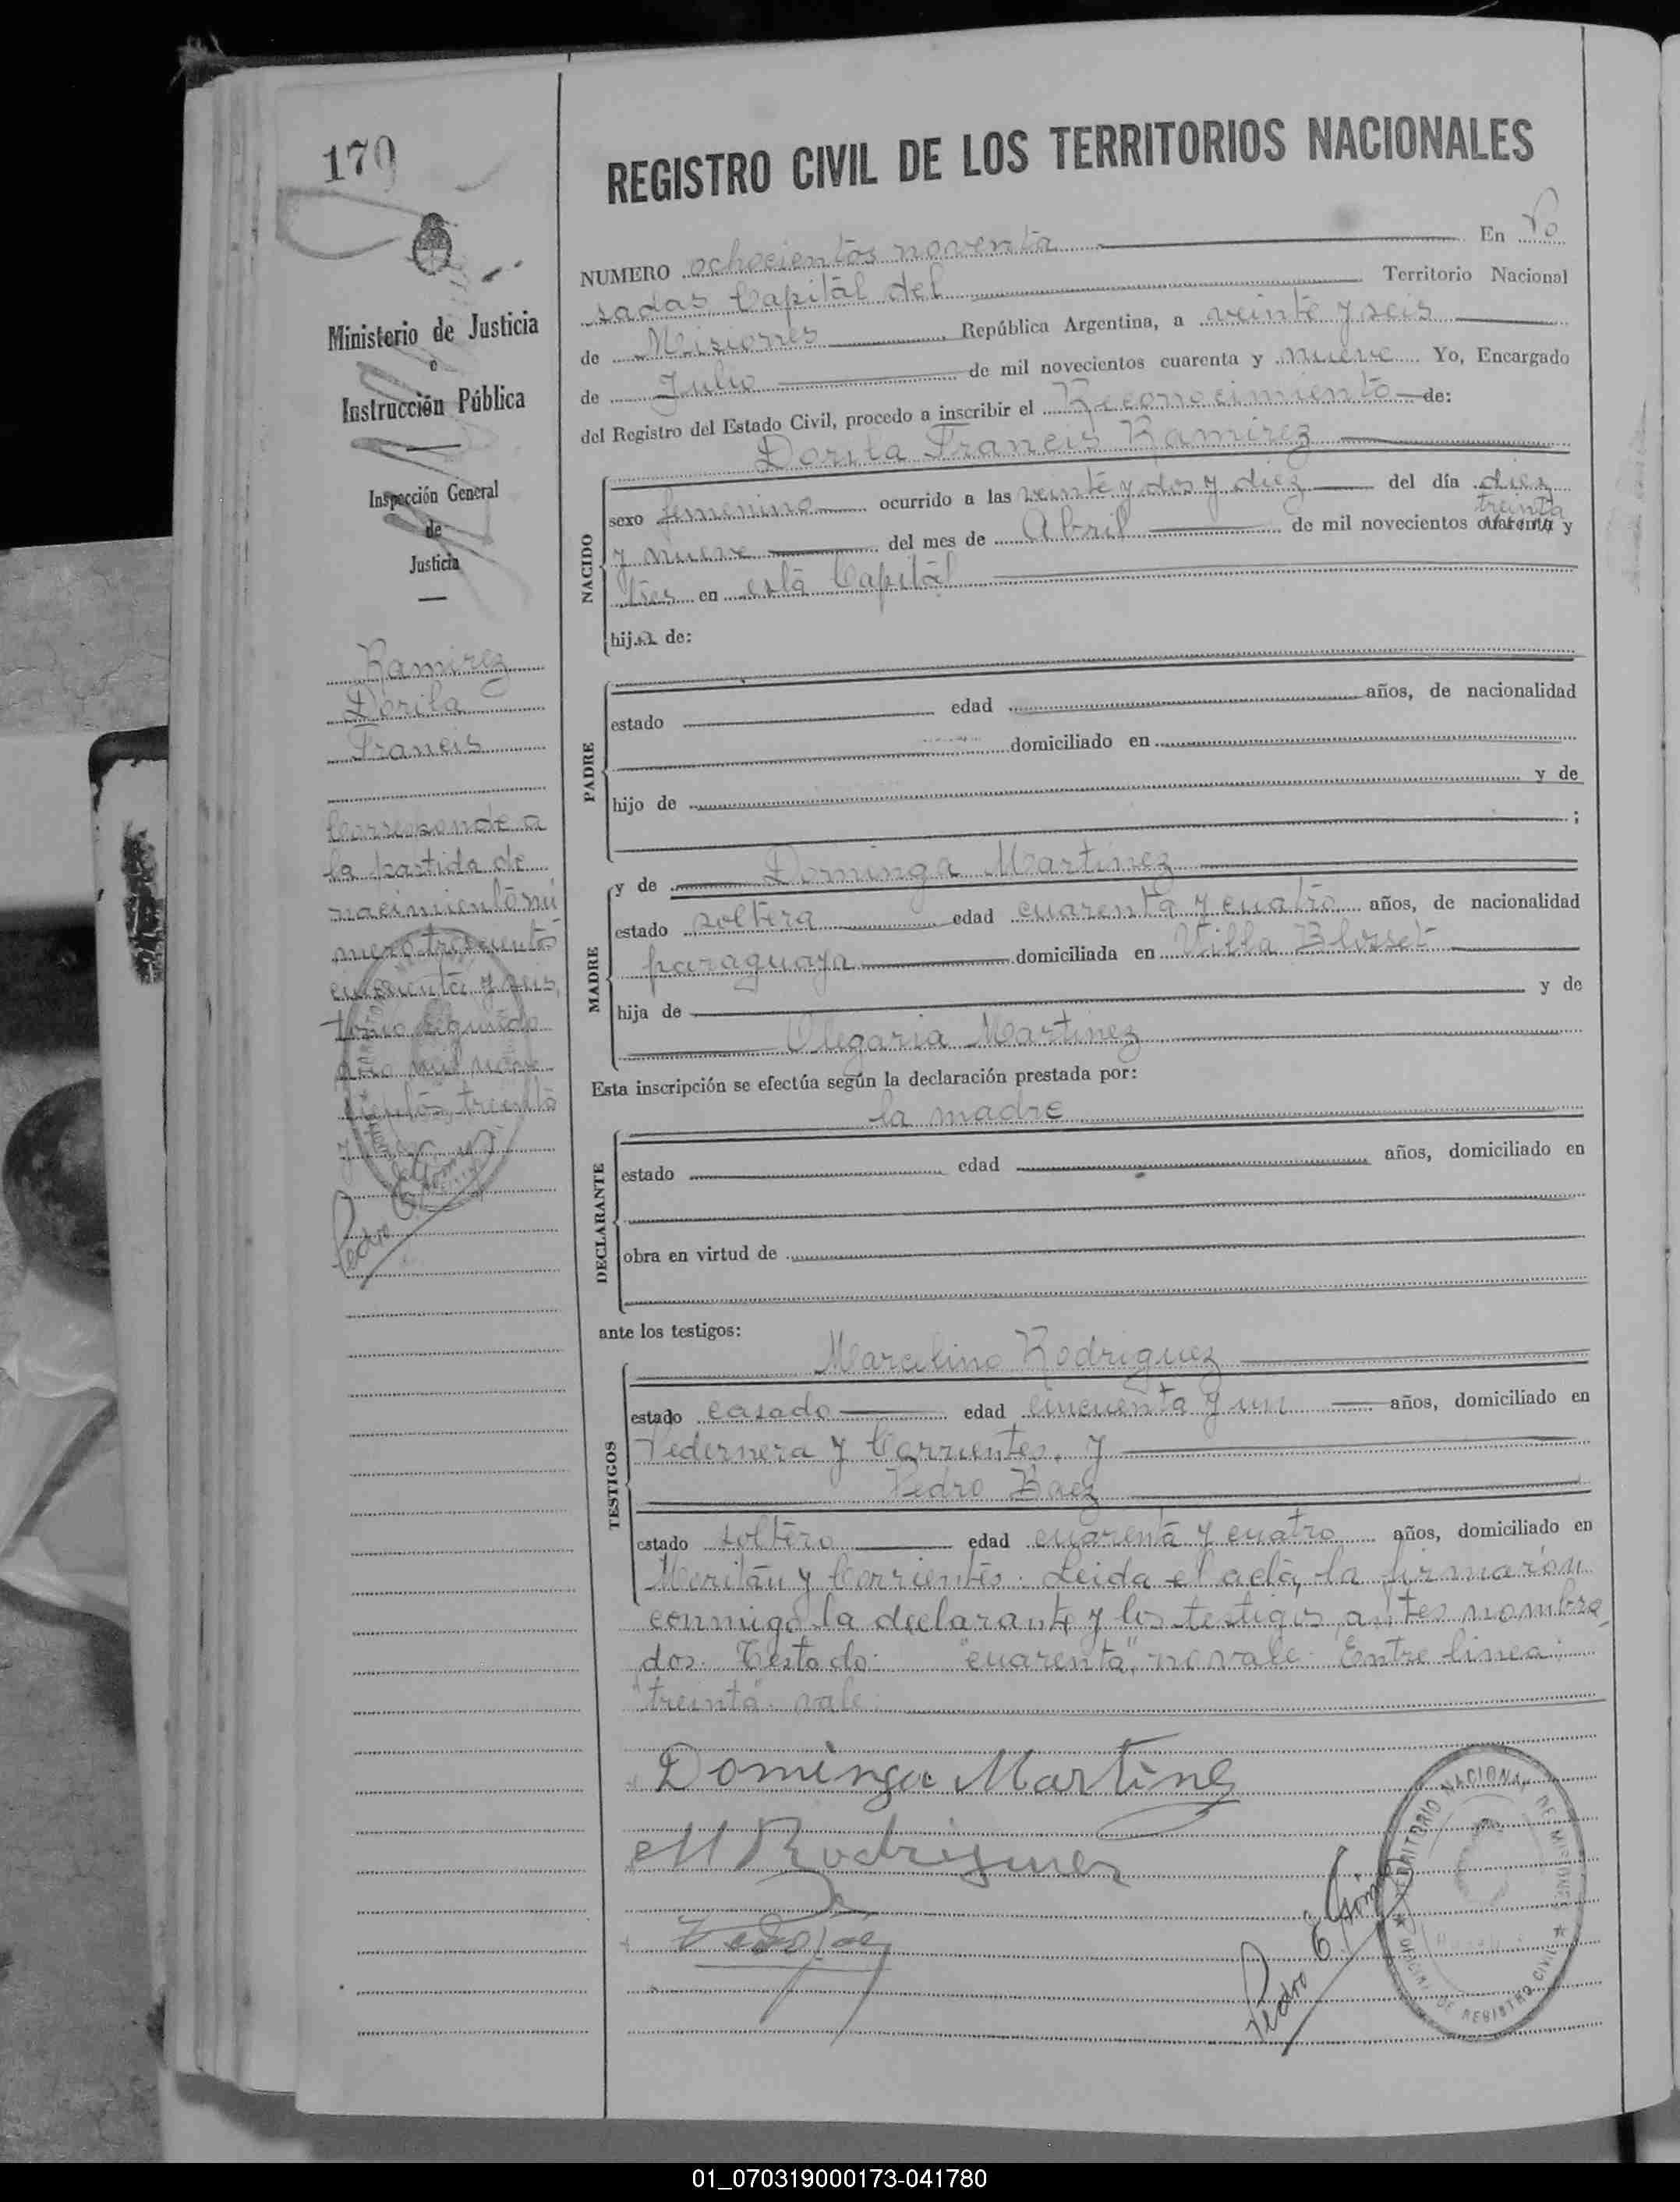 170
Ministerio de Justicia
e
Instrucción Pública
Inspección General
de
Justicia
Ramirez
Dorila
Francis
Corresponde a
la partida de
nacimiento nú
mero trescientos
cincuenta y seis,
tomo segundo
año mil nove
cientos treinta
y
Pedro E Gómez
REGISTRO CIVIL DE LOS TERRITORIOS NACIONALES
NUMERO ochocientos noventa En Po
sadas Capital del Territorio Nacional
de Misiones República Argentina, a veinte y seis
de Julio de mil novecientos cuarenta y nueve Yo, Encargado
del Registro del Estado Civil, procedo a inscribir el Reconocimiento de:
Dorila Francis Ramirez
NACIDO
sexo femenino ocurrido a las veinte y dos y diez del día diez
treinta
y nueve del mes de Abril de mil novecientos cuarenta y
tres en esta Capital
hija de:
PADRE
estado edad años, de nacionalidad
domiciliado en
hijo de y de
;
MADRE
y de Dominga Martinez
estado soltera edad cuarenta y cuatro años, de nacionalidad
paraguaya domiciliada en Villa Blosset
hija de y de
Olegaria Martinez
Esta inscripción se efectúa según la declaración prestada por:
la madre
DECLARANTE
estado edad años, domiciliado en
obra en virtud de
ante los testigos:
TESTIGOS
Marcelino Rodriguez
estado casado edad cincuenta y un años, domiciliado en
Pedernera y Corrientes. y
Pedro Baez
estado soltero edad cuarenta y cuatro años, domiciliado en
y Corrientes. Leida el acta, la firmaron
conmigo la declarante y los testigos antes nombra
dos. Testado: "cuarenta", no vale. Entre linea:
"treinta". vale.
Dominga Martinez
M Rodriguez
Pedro E Gómez
TERRITORIO NACIONAL DE MISIONES
OFICINA DE REGISTRO CIVIL
01_070319000173-041780